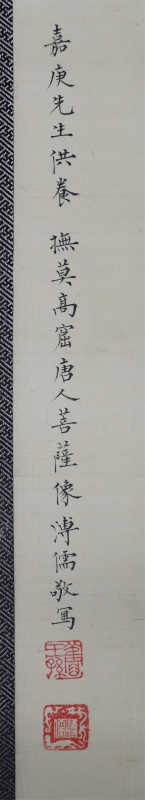 嘉庚先生供養 撫莫高窟唐人菩薩像溥儒敬寫
舊王孫